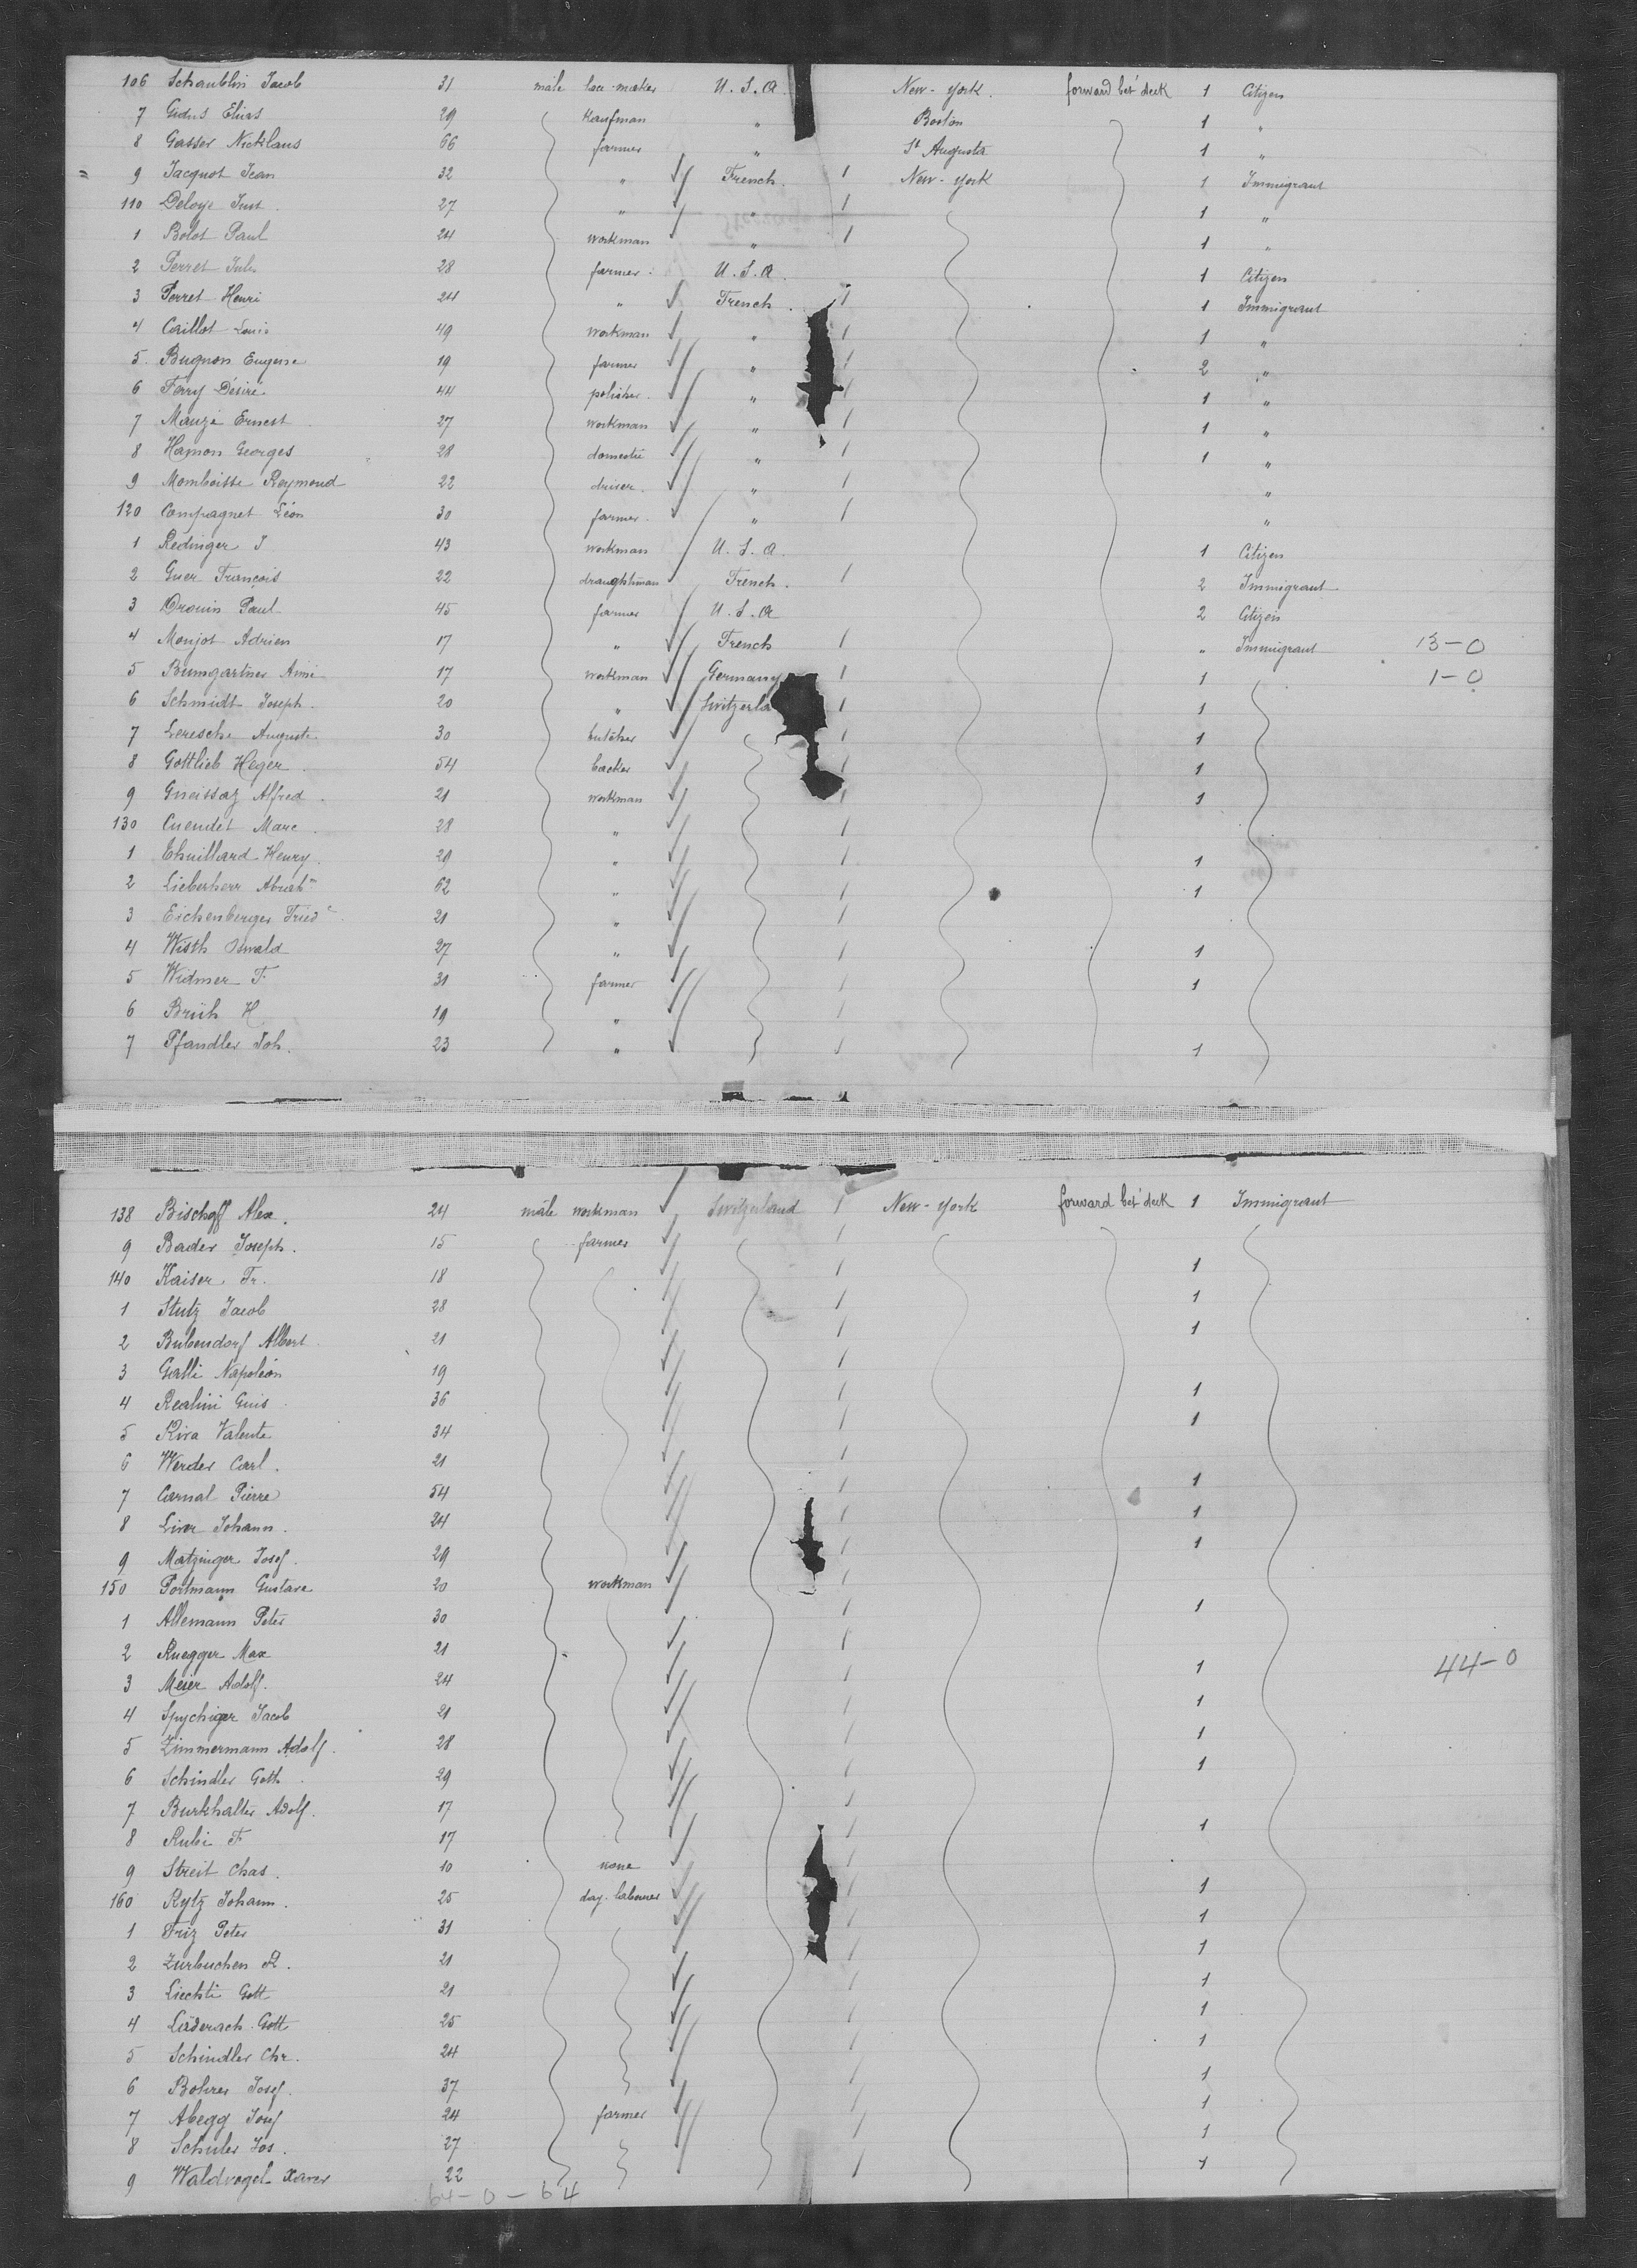 106 Schaublin Jacob 31 male U.S.A. New-York. forward bet' deck 1 Citizen
7 Elias 29 Kaufman " Boston 1 "
8 Gasser Nicklaus 66 farmer " St Augusta 1 "
9 Jacquot Jean 32 " French. 1 New-York 1 Immigrant
110 Deloye Just 27 " " 1 1 "
1 Bolot Paul 24 workman " 1 1 "
2 Perret Jules 28 farmer U.S.A. 1 Citizen
3 Perret Henri 24 " French. 1 1 Immigrant
4 Caillot Louis 49 workman " 1 1 "
5 Bugnon Eugene 19 farmer " 1 2 "
6 Ferry Désiré 44 polisher " 1 1 "
7 Mauzé Ernest 27 workman " 1 1 "
8 Hamon Georges 28 domestic " 1 1 "
9 Momboisse Reymond 22 driver " 1 "
120 Compagnet Léon 30 farmer " 1 "
1 Redinger J 43 workman U.S.A. 1 Citizen
2 Guer François 22 draughtman French. 1 2 Immigrant
3 Drouin Paul 45 farmer U.S.A 2 Citizen
4 Monjot Adrien 17 " French 1 " Immigrant 13-0
5 Bumgartner Aimé 17 workman Germany 1 1 1-0
6 Schmidt Joseph 20 " Switzerla 1 1
7 Leresche Auguste 30 butcher 1 1
8 Gottlieb Heger 54 backer 1 1
9 Gneissaz Alfred 21 workman 1 1
130 Cuendet Marc 28 " 1
1 Henry 29 " 1 1
2 Lieberherr Abrahm 62 " 1 1
3 Eichenberger Friedc 21 " 1
4 Wisth Oswald 27 " 1 1
5 Widmer F. 31 farmer 1 1
6 Brüh H 19 " 1
7 Pfandler Joh. 23 " 1 1
138 Bischoff Alex. 24 male workman Switzerland 1 New-York forward bet' deck 1 Immigrant
9 Bader Joseph. 15 farmer 1
140 Kaiser Fr. 18 1 1
1 Stutz Jacob 28 1 1
2 Bubendorf Albert 21 1 1
3 Galli Napoléon 19 1
4 Realini Guis 36 1 1
5 Riva Valente 34 1 1
6 Werder Carl. 21 1
7 Carnal Pierre 54 1 1
8 Johann. 24 1 1
9 Matzinger Josef. 29 1 1
150 Portmann Gustave 20 workman 1
1 Allemann Peter 30 1 1
2 Ruegger Max 21 1
3 Meier Adolf. 24 1 1 44-0
4 Spychiger Jacob 21 1 1
5 Zimmermann Adolf. 28 1 1
6 Schindler Goth 29 1 1
7 Burkhalter Adolf. 17 1
8 Rubi F 17 1 1
9 Streit Chas. 10 none 1
160 Rytz Johann. 25 day-laborer 1 1
1 Friz Peter 31 1 1
2 Zurbuchen R. 21 1 1
3 Liechti Gott 21 1 1
4 Läderach Gott 25 1 1
5 Schindler Chr. 24 1 1
6 Bohrer Josef. 37 1 1
7 Abegg Josef 24 farmer 1 1
8 Schuler Jos. 27 1 1
9 Waldvogel Xaver 22 1 1
64-0-64